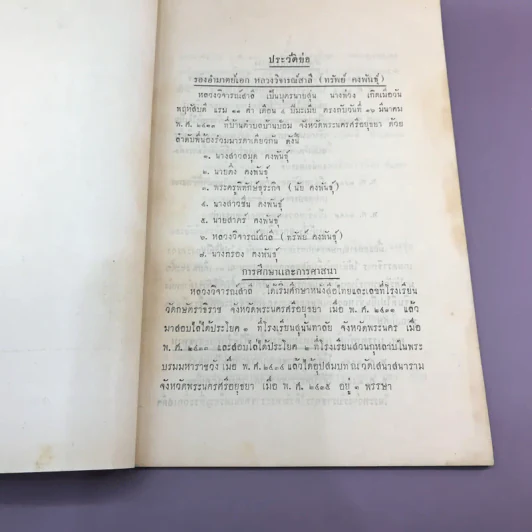 ประวัติย่อ
รองอำมาตย์เอก หลวงวิจารณ์สาลี (ทรัพย์ คงพันธุ์)
หลวงวิจารณ์สาลี เป็นบุตรนายอุ่น นางพ่วง เกิดเมื่อวัน
พฤหัสบดี แรม ๑๑ ค่ำ เดือน ๔ ปีมะเมีย ตรงกับวันที่ ๑๖ มีนาคม
พ.ศ. ที่บ้านตำบลบ้านป้อม จังหวัดพระนครศรีอยุธยา ด้วย
ลำดับพี่น้องร่วมมารดาเดียวกัน ดังนี้
๑. นางสาวสมุด คงพันธุ์
๒. นายคิ่ง คงพันธุ์
๓. พระครูพิทักษ์ธุระกิจ (นัย คงพันธุ์)
๔. นางสาวชื่น คงพันธุ์
๕. นายสาคร์ คงพันธุ์
๖. หลวงวิจารณ์สาลี (ทรัพย์ คงพันธุ์)
๗. นางกรอง คงพันธุ์
การศึกษาและการศาสนา
หลวงวิจารณ์สาลี ได้เริ่มศึกษาหนังสือไทยและเลขที่โรงเรียน
วัดกษัตราธิราช จังหวัดพระนครศรีอยุธยา เมื่อ พ.ศ. แล้ว
มาสอบไล่ได้ประโยค ๑ ที่โรงเรียนสุนันทาลัย จังหวัดพระนคร เมื่อ
พ.ศ. และสอบไล่ได้ประโยค ๒ ที่โรงเรียนสวนกุหลาบในพระ
บรมมหาราชวัง เมื่อ พ.ศ. แล้วได้อุปสมบทณวัดเสนาสนาราม
จังหวัดพระนครศรีอยุธยา เมื่อ พ.ศ. ๒๔๓๕ อยู่ ๑ พรรษา